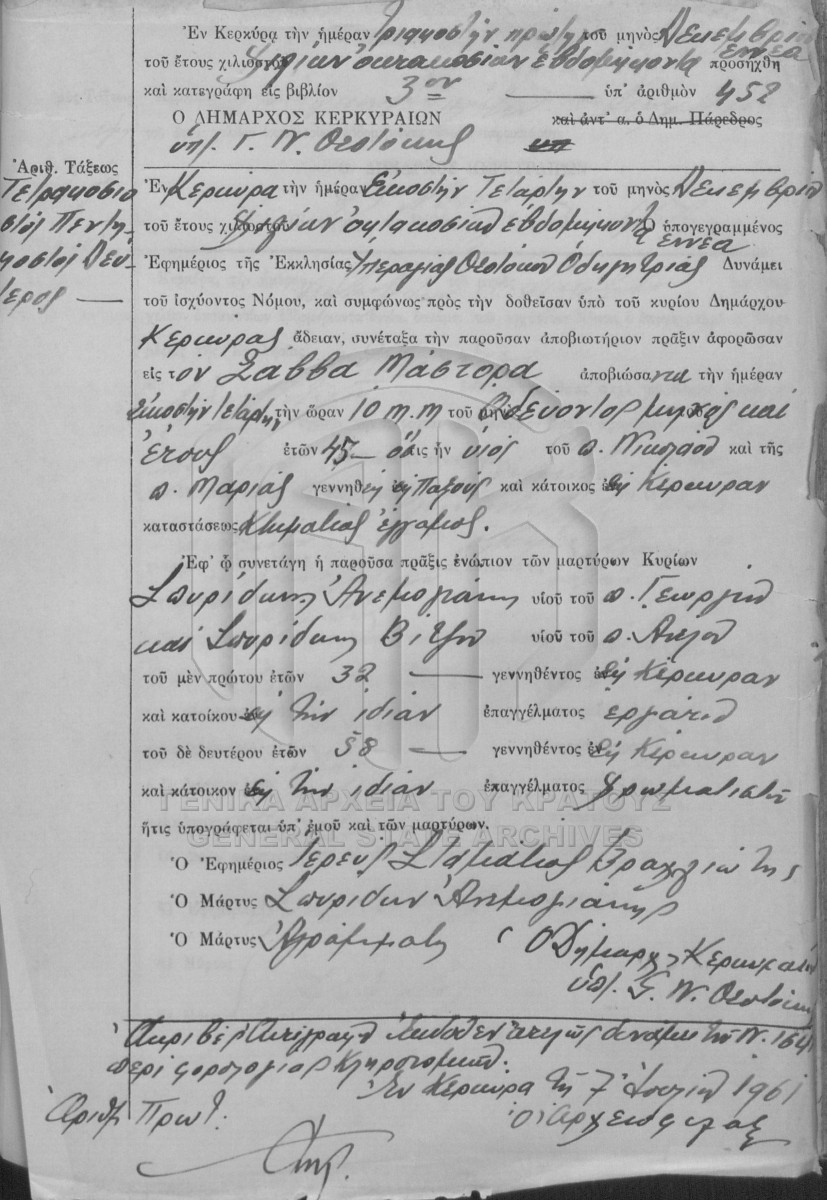 Ἐν Κερκύρᾳ τὴν ἡμέραν τριακοστὴν πρώτην τοῦ μηνὸς Δεκεμβρίου
τοῦ ἔτους χιλιοστοῦ ὀκτακοσιοστοῦ ἑβδομηκοντα εννέα προσήχθη
καὶ κατεγράφη εἰς βιβλίον 3ον — ὑπ' ἀριθμὸν 452
Ο ΔΗΜΑΡΧΟΣ ΚΕΡΚΥΡΑΙΩΝ καὶ ἀντ' α. ὁ Δημ. Πάρεδρος
ὑπ. Γ. Ν. Θεοτόκης
Ἀριθ. Τάξεως
Τετρακοσιο
στός Πεντη-
κοστός Δεύ-
τερος —
Ἐν Κερκύρα τὴν ἡμέραν Εἰκοστὴν Τετάρτην τοῦ μηνὸς Δεκεμβρίου
τοῦ ἔτους χιλιοστοῦ ὀκτακοσιοστοῦ ἑβδομηκοντα εννέα Ὁ ὑπογεγραμμένος
Ἐφημέριος τῆς Ἐκκλησίας Ὑπεραγίας Θεοτόκου Ὁδηγητρίας Δυνάμει
τοῦ ἰσχύοντος Νόμου, καὶ συμφώνως πρὸς τὴν δοθεῖσαν ὑπὸ τοῦ κυρίου Δημάρχου
Κερκύρας ἄδειαν, συνέταξα τὴν παροῦσαν ἀποβιωτήριον πρᾶξιν ἀφορῶσαν
εἰς τὸν Σάββα Μάστορα ἀποβιώσαντα τὴν ἡμέραν
Εἰκοστὴν τετάρτην τὴν ὥραν 10 π.μ τοῦ ὁδεύοντος μηνὸς καὶ
ἔτους ἐτῶν 45 — ὅστις ἦν υἱὸς τοῦ π. Νικολάου καὶ τῆς
π. Μαρίας γεννηθεὶς εἰς Παξοὺς καὶ κάτοικος εἰς Κέρκυραν
καταστάσεως Κτηματίας ἔγγαμος.
Ἐφ' ᾧ συνετάγη ἡ παροῦσα πρᾶξις ἐνώπιον τῶν μαρτύρων Κυρίων
Σπυρίδωνος Ἀνεμογιάννη υἱοῦ τοῦ π. Γεωργίου
καὶ Σπυρίδωνος υἱοῦ τοῦ π.
τοῦ μὲν πρώτου ἐτῶν 32 — γεννηθέντος εἰς Κέρκυραν
καὶ κατοίκου εἰς τὴν ἰδίαν ἐπαγγέλματος ἐργάτου
τοῦ δὲ δευτέρου ἐτῶν 58 — γεννηθέντος εἰς Κέρκυραν
καὶ κάτοικον εἰς τὴν ἰδίαν ἐπαγγέλματος χρωματιστοῦ
ΓΕΝΙΚΑ ΑΡΧΕΙΑ ΤΟΥ ΚΡΑΤΟΥΣ
ἥτις ὑπογράφεται ὑπ' ἐμοῦ καὶ τῶν μαρτύρων.
GENERAL STATE ARCHIVES
Ὁ Ἐφημέριος Ἱερεὺς Σταμάτιος
Ὁ Μάρτυς Σπυρίδων Ἀνεμογιάννης
Ὁ Μάρτυς Ἀγράμματος Ὁ Δήμαρχος Κερκυραίων
ὑπ. Γ. Ν. Θεοτόκης
Ἀκριβὲς Ἀντίγραφον ἐκδοθὲν ἀτελῶς δυνάμει τοῦ Ν. 1641
περὶ φορολογίας κληρονομιῶν.
Ἐν Κερκύρα τῇ 7 Ἰουλίου 1961
Ἀριθ Πρωτ: Ὁ Ἀρχειοφύλαξ